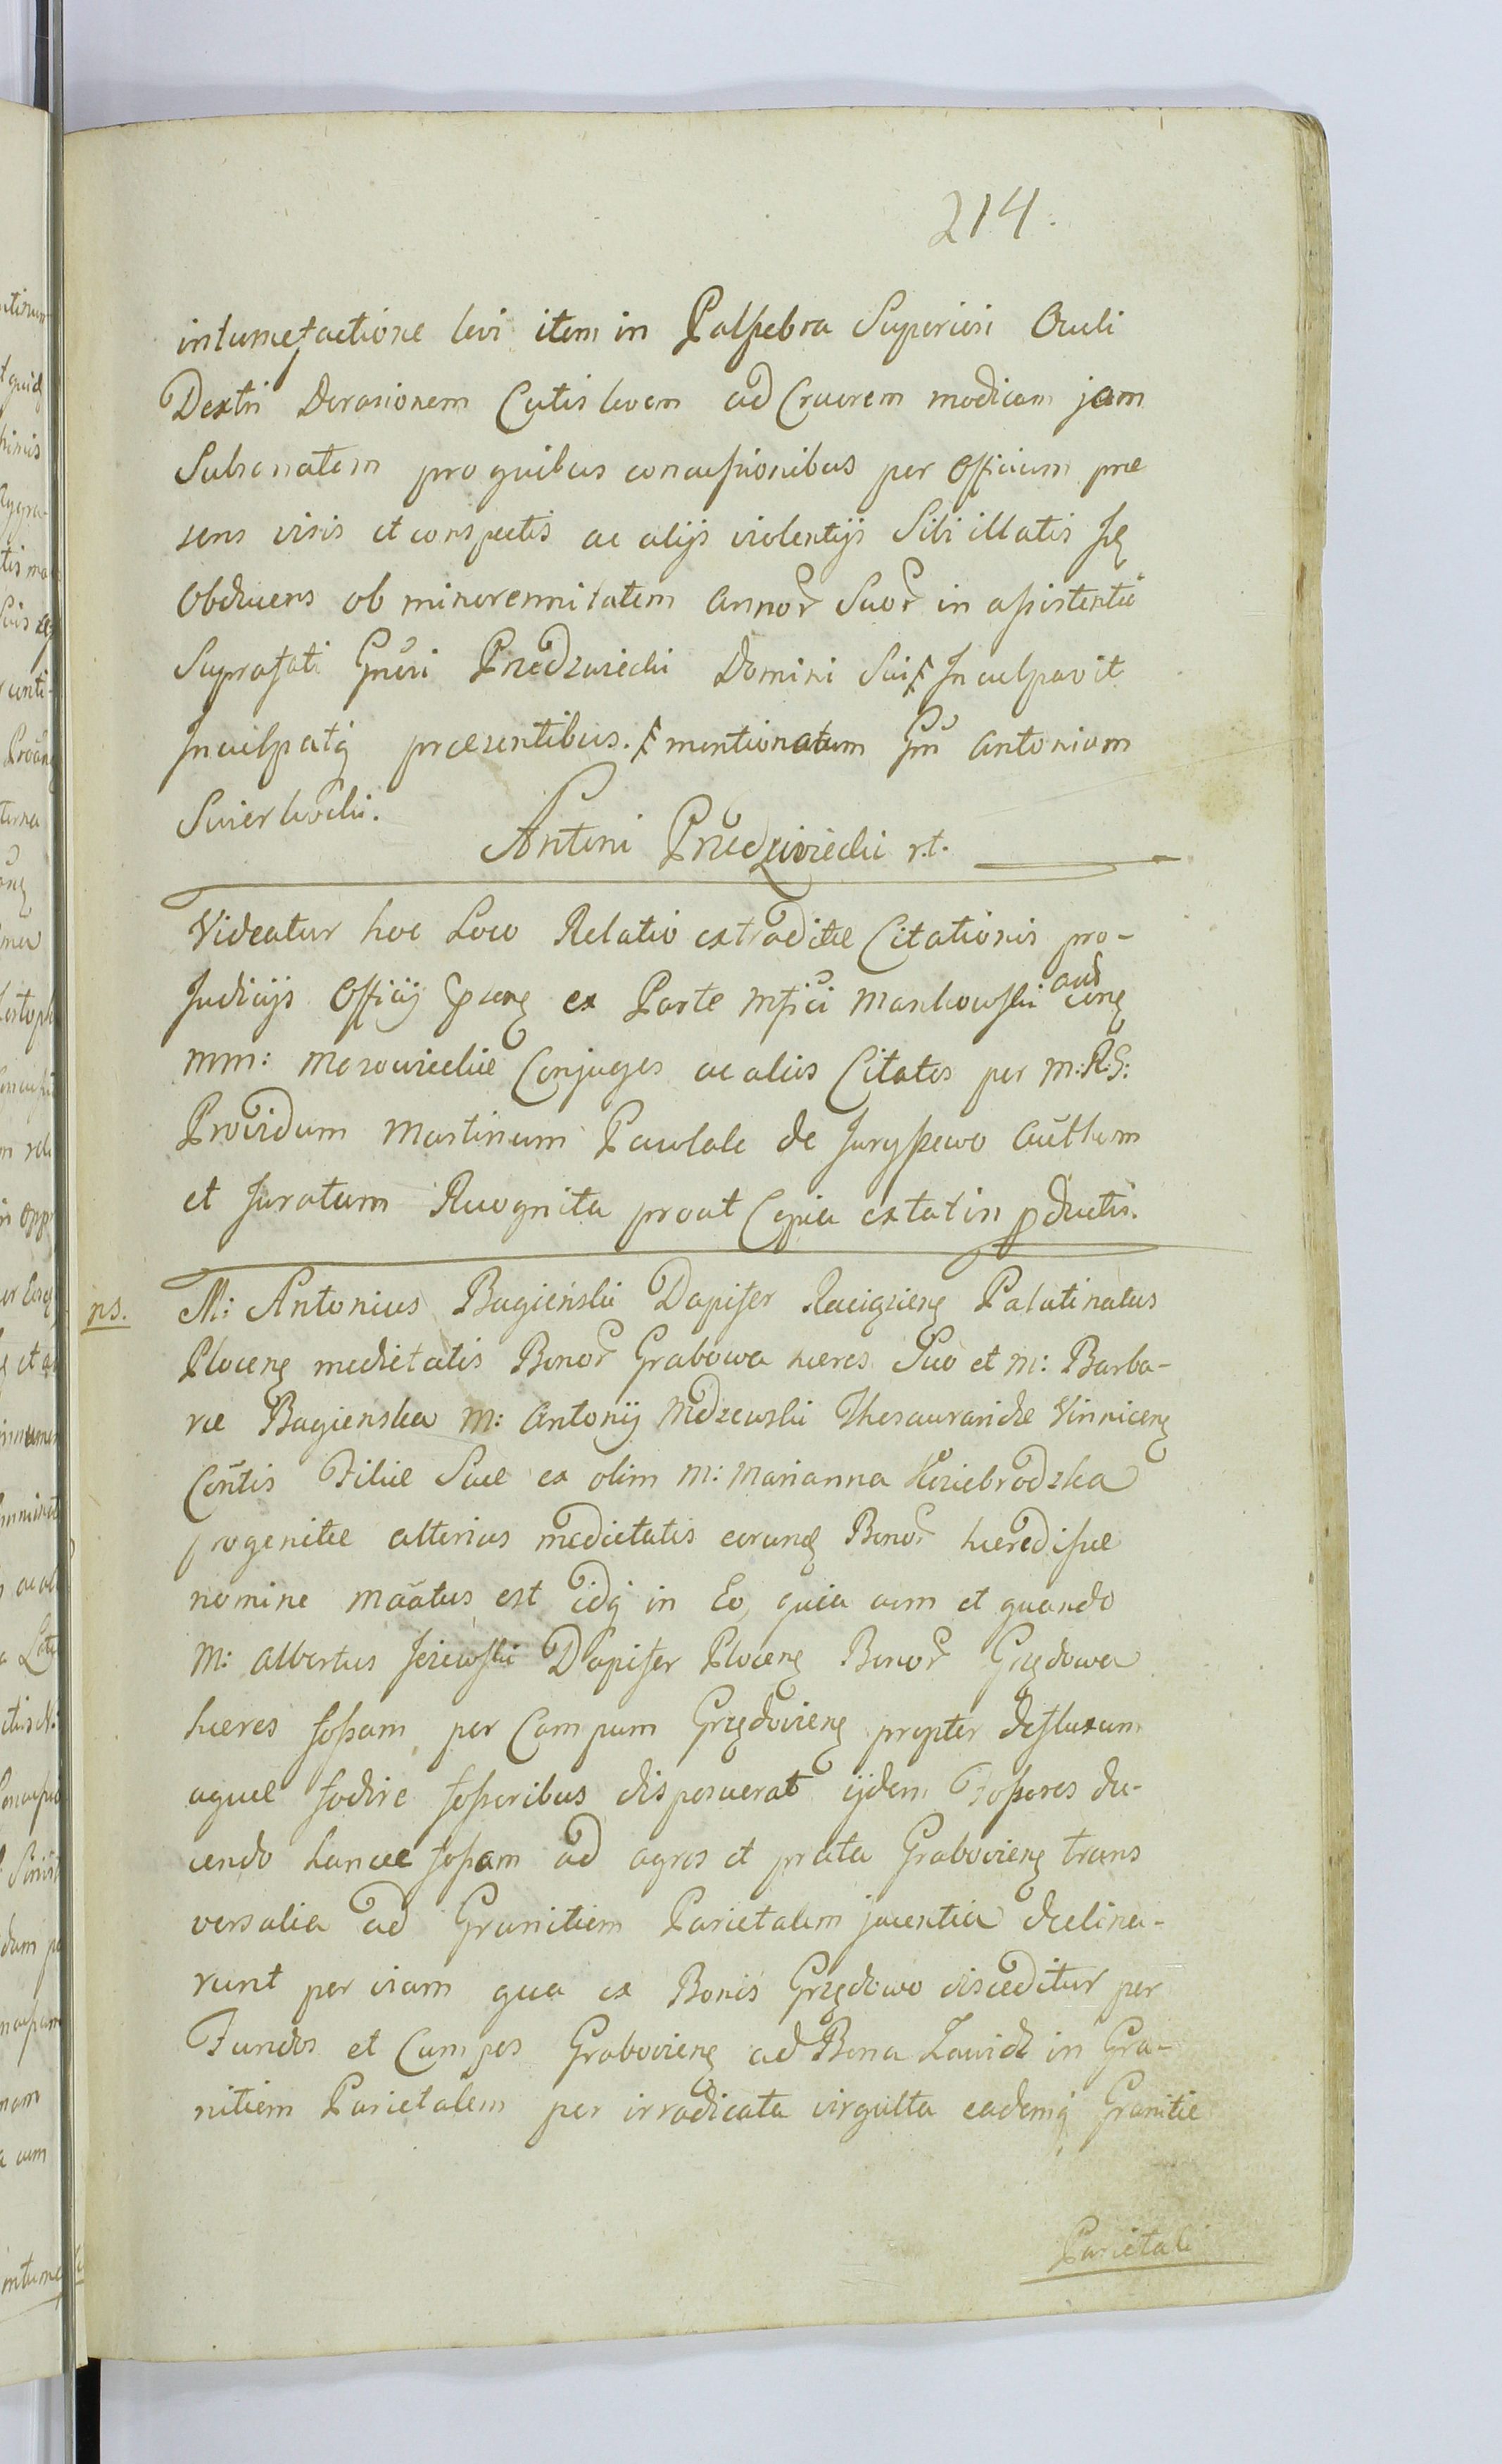 214.
intumefactione levi item in Palpebra Superiori Oculi
Dextri Derasionem Cutis levem ad Cruorem modicum jam
Subsanatam pro quibus concussionibus per Officium prae
sens visis et conspectis ac alijs violentijs Sibi illatis Se
Obducens ob minorennitatem Annor Suor in assistentia
Suprafati Gnri Przedzwiecki Domini Sui Inculpavit
Inculpatq praesentibus. mentionatum Gn Antonium
Swierkocki.
Antoni Przedzwiecki r.t.
Videatur hoc Loco Relatio extraditae Citationis pro-
Judicijs Officij ex Parte Mfici Mankowski
aud
MM: Mazowieckie Conjuges ac alios Citatos per M:R:S:
Providum Martinum Pawlak de Juryszewo Authum
et Juratum Recognita prout Copia extat in pductis.
ns. M: Antonius Bagienski Dapifer Raciązieng Palatinatus
Ploceng medietatis Bonor Grabowa haeres Suo et M: Barba-
rae Bagienska M: Antonij Mdzewski Thesauraridae Vinniceng
Contis Filiae Suae ex olim M: Marianna Kosiebrodzka
progenitae alterius medietatis eorund Bonor haeredisae
nomine Maatus est idq in Eo, quia cum et quando
M: Albertus Jezewski Dapifer Ploceng Bonor Grzędowa
haeres fossam per Campum Grzędovieng propter defluxum
aquae fodire fossoribus disposuerat ijdem Fossores du-
cendo hancce fossam ad agros et prata Grabovieng trans
versalia ad Granitiem Parietalem jacentia declina-
runt per viam qua ex Bonis Grzędowo disceditur per
Fundos et Campos Grabovieng ad Bona Zawidz in Gra-
nitiem Parietalem per irradicata virgulta eademq Granitie
Parietali